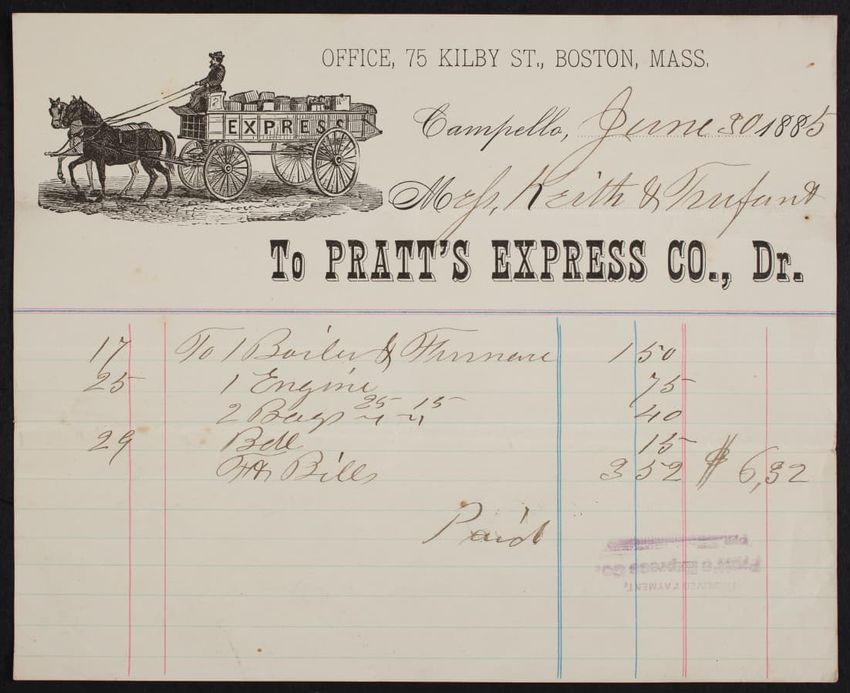 OFFICE, 75 KILBY ST., BOSTON, MASS.
EXPRESS
Campello, June 30 1885
Mess, Keith & Trufant
To PRATT'S EXPRESS CO., Dr.
17 To 1 Boiler & Furnace 1 50
25 1 Engine 75
2 Bags 25 15 40
29 Bell 15
Frt Bills 3 52 $ 6,32
Paid
Pratt's Express Co.
RECEIVED PAYMENT,